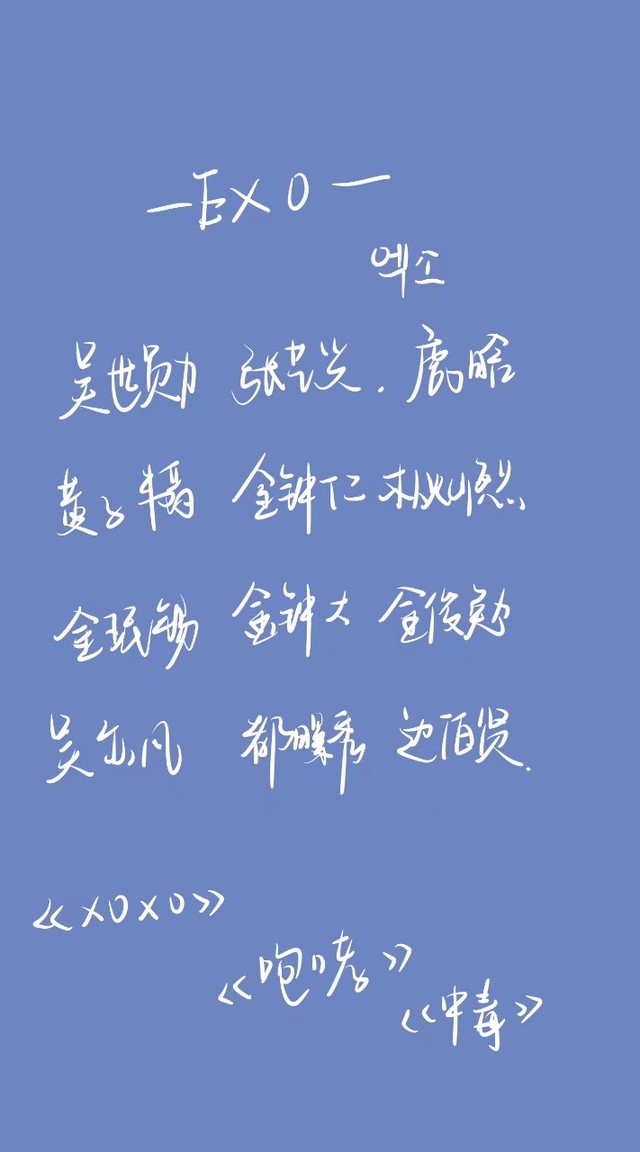 —EXO—
엑소
吴世勋 张艺兴. 鹿晗
黄子韬 金钟仁 朴灿烈
金珉锡 金钟大 金俊勉
吴亦凡 都暻秀 边伯贤.
《XOXO》
《咆哮》
《中毒》